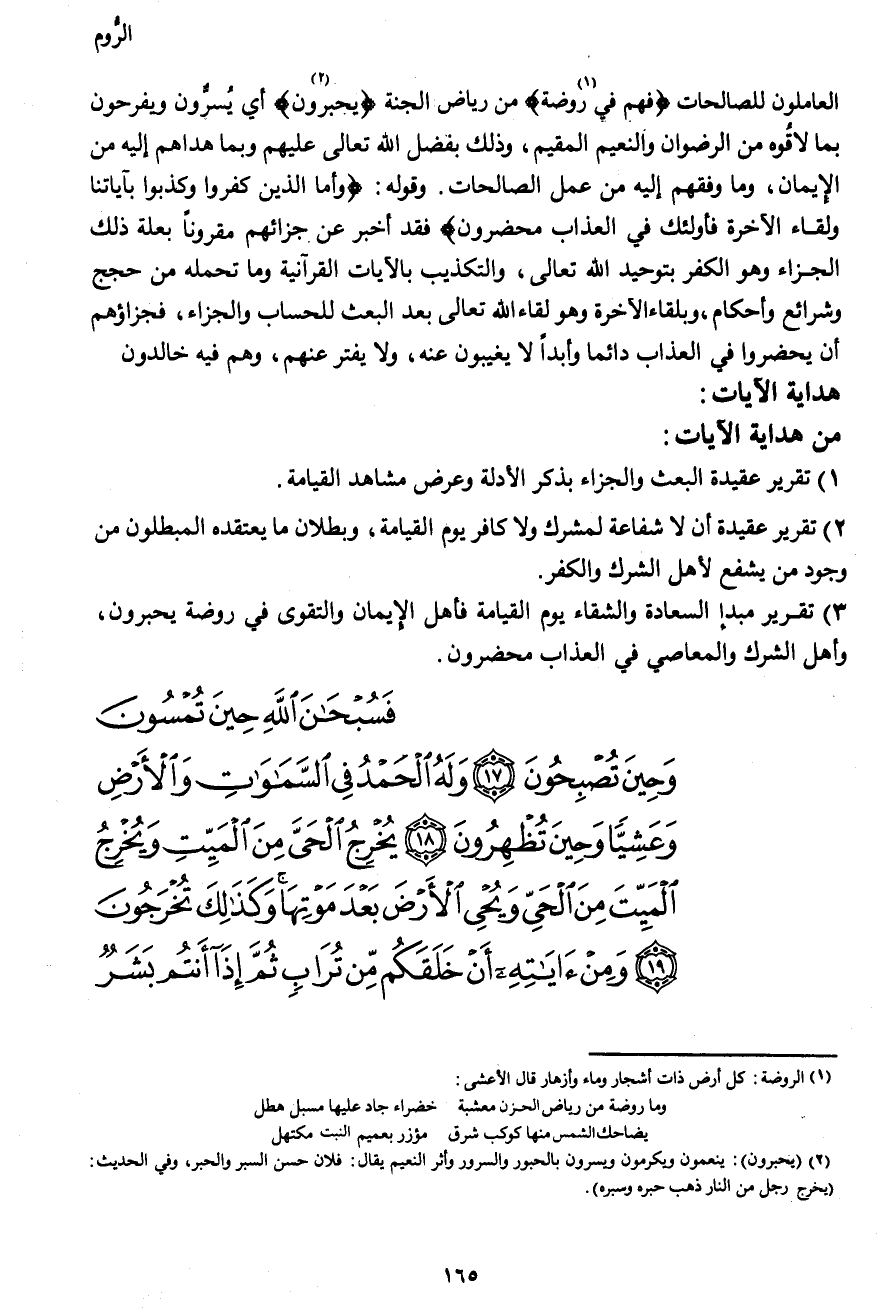 الرُّوم
العاملون للصالحات ﴿فهم في روضة﴾(١) من رياض الجنة ﴿يحبرون﴾(٢) أي يُسرُّون ويفرحون
بما لاقُوه من الرضوان والنعيم المقيم، وذلك بفضل الله تعالى عليهم وبما هداهم إليه من
الإيمان، وما وفقهم إليه من عمل الصالحات. وقوله: ﴿وأما الذين كفروا وكذبوا بآياتنا
ولقاء الآخرة فأولئك في العذاب محضرون﴾ فقد أخبر عن جزائهم مقروناً بعلة ذلك
الجزاء وهو الكفر بتوحيد الله تعالى، والتكذيب بالآيات القرآنية وما تحمله من حجج
وشرائع وأحكام، وبلقاء الآخرة وهو لقاء الله تعالى بعد البعث للحساب والجزاء، فجزاؤهم
أن يحضروا في العذاب دائما وأبداً لا يغيبون عنه، ولا يفتر عنهم، وهم فيه خالدون
هداية الآيات:
من هداية الآيات:
١) تقرير عقيدة البعث والجزاء بذكر الأدلة وعرض مشاهد القيامة.
٢) تقرير عقيدة أن لا شفاعة لمشرك ولا كافر يوم القيامة، وبطلان ما يعتقده المبطلون من
وجود من يشفع لأهل الشرك والكفر.
٣) تقرير مبدإ السعادة والشقاء يوم القيامة فأهل الإيمان والتقوى في روضة يحبرون،
وأهل الشرك والمعاصي في العذاب محضرون.
فَسُبْحَٰنَ ٱللَّهِ حِينَ تُمْسُونَ
وَحِينَ تُصْبِحُونَ ١٧ وَلَهُ ٱلْحَمْدُ فِى ٱلسَّمَٰوَٰتِ وَٱلْأَرْضِ
وَعَشِيًّا وَحِينَ تُظْهِرُونَ ١٨ يُخْرِجُ ٱلْحَىَّ مِنَ ٱلْمَيِّتِ وَيُخْرِجُ
ٱلْمَيِّتَ مِنَ ٱلْحَىِّ وَيُحْىِ ٱلْأَرْضَ بَعْدَ مَوْتِهَا ۚ وَكَذَٰلِكَ تُخْرَجُونَ
١٩ وَمِنْ ءَايَٰتِهِۦٓ أَنْ خَلَقَكُم مِّن تُرَابٍ ثُمَّ إِذَآ أَنتُم بَشَرٌ
(١) الروضة: كل أرض ذات أشجار وماء وأزهار قال الأعشى:
وما روضة من رياض الحزن معشبة خضراء جاد عليها مسبل هطل
يضاحك الشمس منها كوكب شرق مؤزر بعميم النبت مكتهل
(٢) (يحبرون): ينعمون ويكرمون ويسرون بالحبور والسرور وأثر النعيم يقال: فلان حسن السبر والحبر، وفي الحديث:
(يخرج رجل من النار ذهب حبره وسبره).
١٦٥